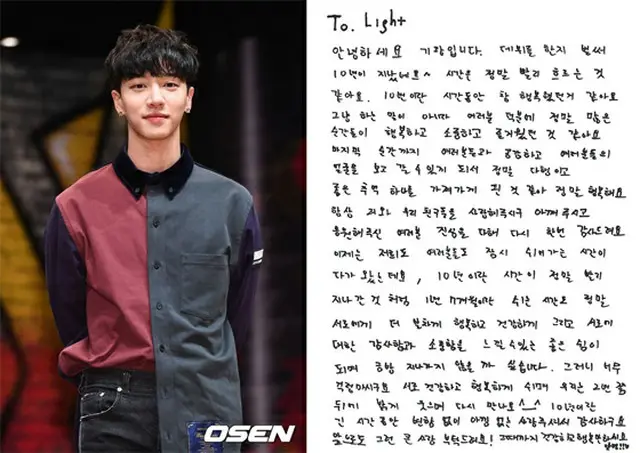 To. Light
안녕하세요 기광입니다. 데뷔를 한지 벌써
10년이 지났네요~ 시간은 정말 빨리 흐르는 것
같아요. 10년이란 시간동안 참 행복했던거 같아요
그냥 하는 말이 아니라 여러분 덕분에 정말 많은
순간들이 행복하고 소중하고 즐거웠던 것 같아요
마지막 순간까지 여러분들과 공감하고 여러분들의
얼굴을 보고 갈 수 있게 되서 정말 다행이고
좋은 추억 하나를 가져가게 된 것 같아 정말 행복해요
항상 저와 우리 친구들을 사랑해주시구 아껴주시고
응원해주신 여러분 진심을 다해 다시 한번 감사드려요
이제는 저희도 여러분들도 잠시 쉬어가는 시간이
다가 왔는데요, 10년이란 시간이 정말 빨리
지나간 것 처럼 1년 7개월이란 쉬는 시간도 정말
서로에게 더 벅차게 행복하고 건강하게 그리고 서로에
대한 감사함과 소중함을 느낄 수 있는 좋은 쉼이
되며 금방 지나가지 않을 까 싶습니다. 그러니 너무
걱정마시구요 서로 건강하고 행복하게 쉬며 우리는 2년 뒤
밝게 웃으며 다시 만나요^_^ 10년이란
긴 시간동안 변함 없이 아낌 없는 사랑 주셔서 감사하구요
앞으로도 그런 큰 사랑 부탁드려요! 그때까지 건강하고 행복만하세요
OSEN